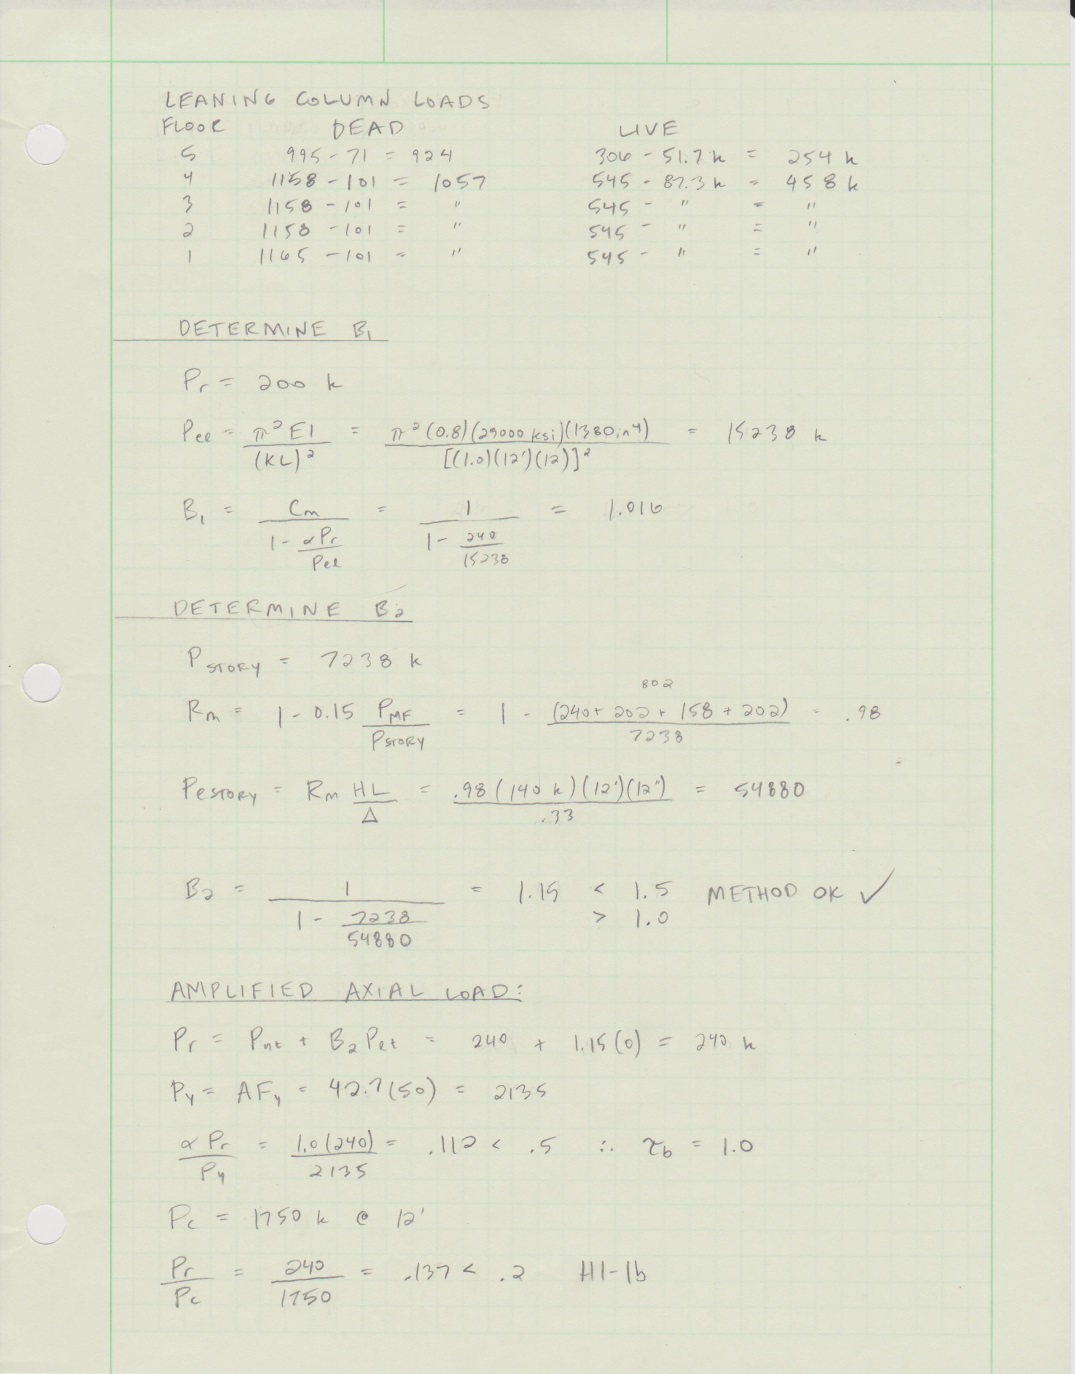 LEANING COLUMN LOADS
FLOOR DEAD LIVE
5 995 - 71 = 924 306 - 51.7 k = 254 k
4 1158 - 101 = 1057 545 - 87.3 k = 458 k
3 1158 - 101 = " 545 - " = "
2 1158 - 101 = " 545 - " = "
1 1165 - 101 = " 545 - " = "
DETERMINE B1
Pr = 200 k
Pee = π² EI / (KL)² = π² (0.8)(29000 ksi)(1380 in⁴) / [(1.0)(12')(12)]² = 15238 k
B1 = Cm / (1 - αPr / Pel) = 1 / (1 - 240 / 15238) = 1.016
DETERMINE B2
P STORY = 7238 k
802
Rm = 1 - 0.15 PMF / PSTORY = 1 - (240 + 202 + 158 + 202) / 7238 = .98
PESTORY = RM HL / Δ = .98 (140 k)(12')(12") / .33 = 54880
B2 = 1 / (1 - 7238 / 54880) = 1.15 < 1.5 METHOD OK ✓
> 1.0
AMPLIFIED AXIAL LOAD:
Pr = Pnt + B2 Pet = 240 + 1.15 (0) = 240 k
Py = AFy = 42.7 (50) = 2135
αPr / Py = 1.0 (240) / 2135 = .112 < .5 ∴ τb = 1.0
Pc = 1750 k @ 12'
Pr / Pc = 240 / 1750 = .137 < .2 H1-1b